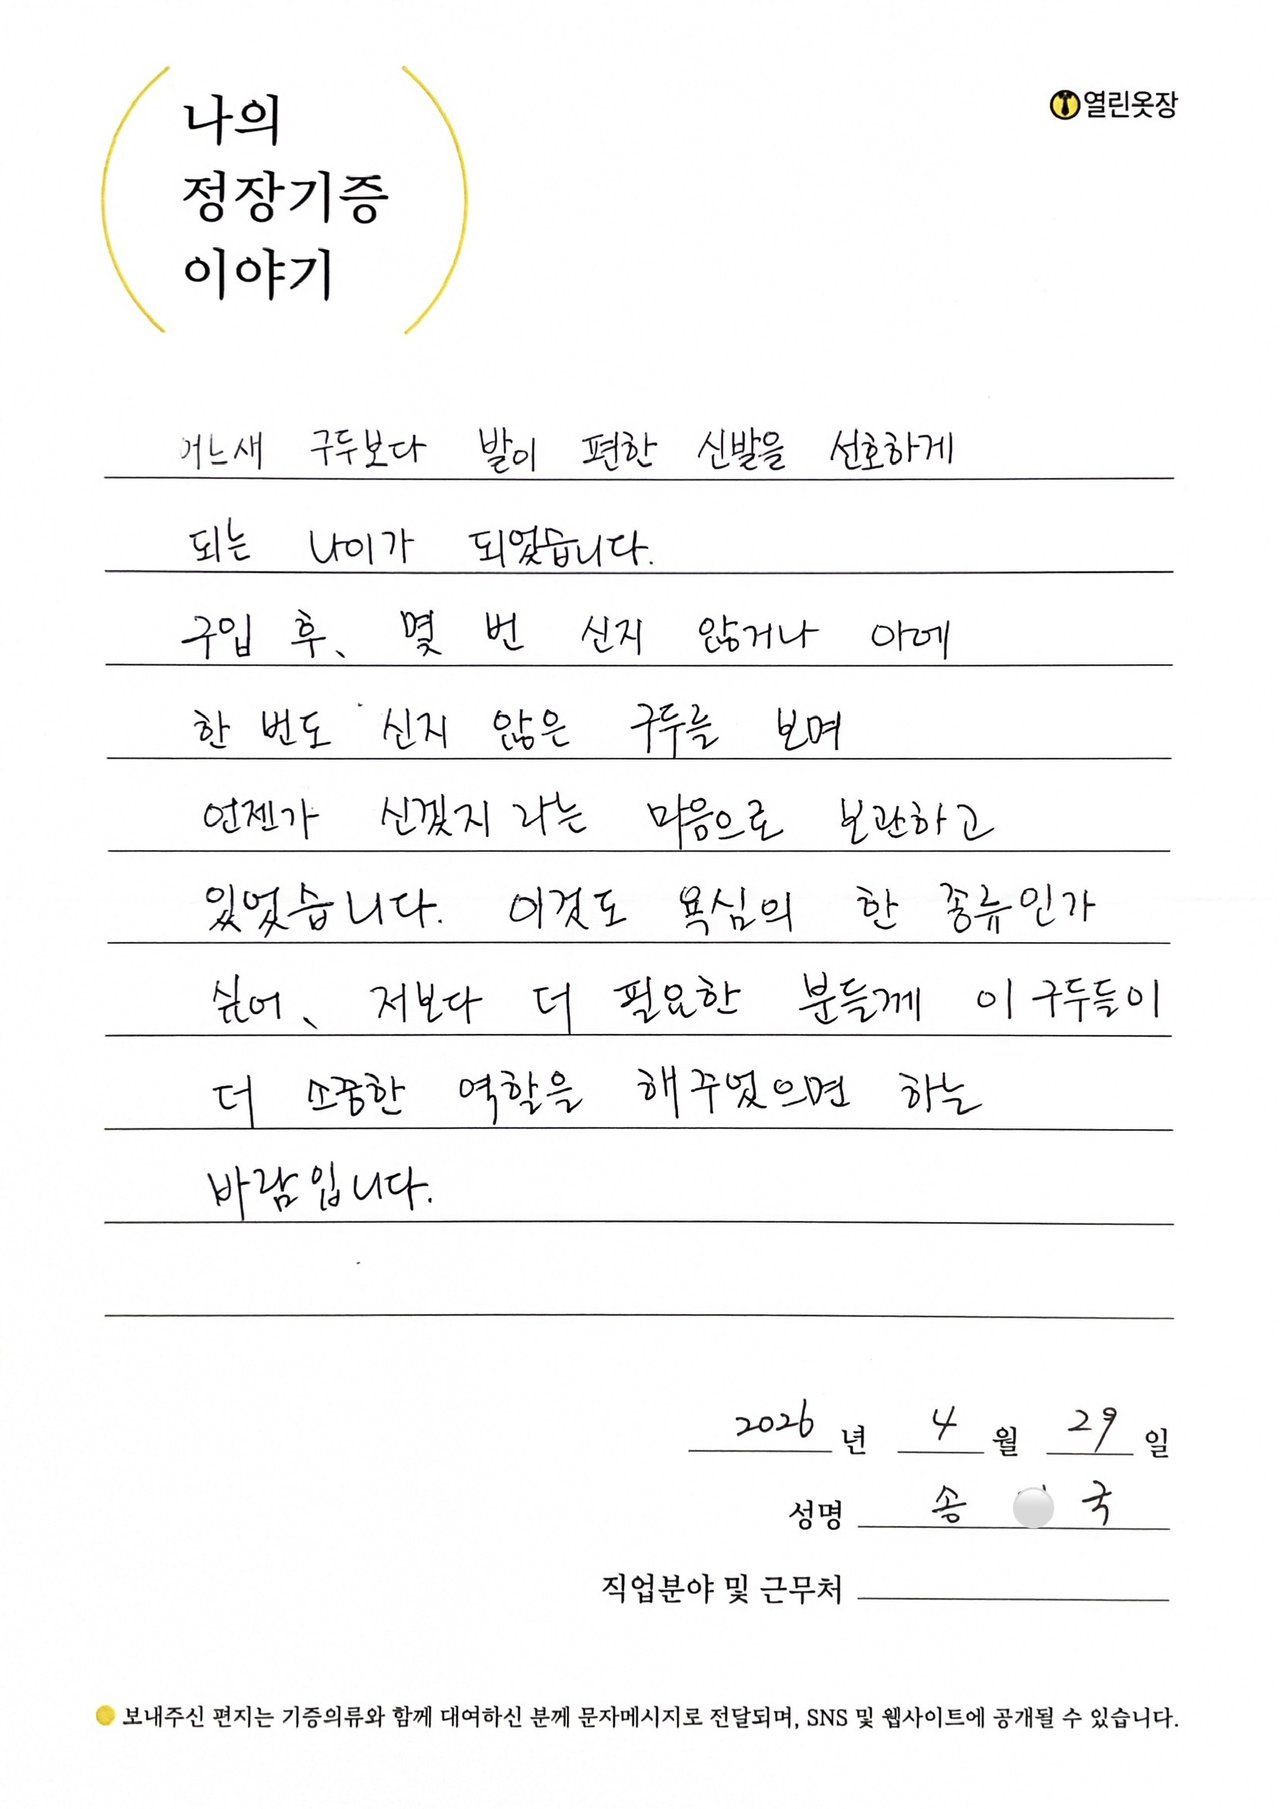 나의
정장기증
이야기
열린옷장
어느새 구두보다 발이 편한 신발을 선호하게
되는 나이가 되었습니다.
구입 후, 몇 번 신지 않거나 아예
한 번도 신지 않은 구두를 보며
언젠가 신겠지 라는 마음으로 보관하고
있었습니다. 이것도 욕심의 한 종류인가
싶어, 저보다 더 필요한 분들께 이 구두들이
더 소중한 역할을 해주었으면 하는
바람입니다.
2026 년 4 월 29 일
성명 송 국
직업분야 및 근무처
보내주신 편지는 기증의류와 함께 대여하신 분께 문자메시지로 전달되며, SNS 및 웹사이트에 공개될 수 있습니다.